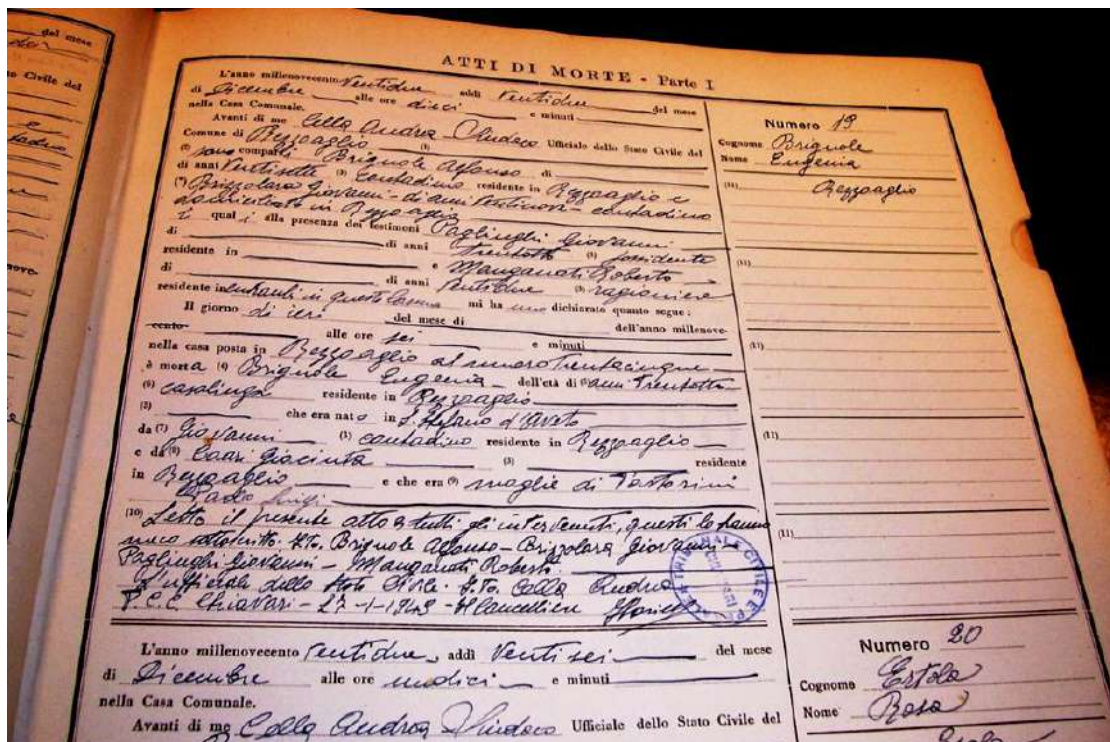 del mese
Civile del
ATTI DI MORTE - Parte I
L'anno millenovecento Ventidue addì Ventidue del mese
di Dicembre alle ore dieci e minuti
nella Casa Comunale.
Avanti di me Cella Andrea Sindaco Ufficiale dello Stato Civile del
Comune di Rezzoaglio (1)
(2) sono comparsi Brignole Alfonso di
di anni Ventisette (3) Contadino residente in Rezzoaglio e
(7) Brizzolara Giovanni - di anni Ventinove - contadino
domiciliato in Rezzoaglio
i quali alla presenza dei testimoni Paglinghi Giovanni
di di anni Trentotto (3) possidente
residente in e Manganati Roberto
di di anni Ventidue (3) ragioniere
residente in entrambi in questo Comune mi ha nno dichiarato quanto segue:
Il giorno di ieri del mese di dell'anno millenove-
cento alle ore sei e minuti
nella casa posta in Rezzoaglio al numero Trentacinque
è morta (4) Brignole Eugenia - dell'età di anni Trentotto
(6) casalinga residente in Rezzoaglio
(3) che era nata in S. Stefano d'Aveto
da (7) Giovanni (1) contadino residente in Rezzoaglio
e da (8) Giacinta (3) residente
in Rezzoaglio e che era (9) moglie di Pastorini
Luigi
(10) Letto il presente atto a tutti gli intervenuti, questi lo hanno
meco sottoscritto. F.to. Brignole Alfonso - Brizzolara Giovanni -
Paglinghi Giovanni - Manganati Roberto.
L'ufficiale dello Stato Civile. F.to. Cella Andrea
P.C.C. Chiavari - 27-1-1949 - Il Cancelliere
TRIBUNALE CIVILE E PE
Numero 19
Cognome Brignole
Nome Eugenia
(11) Rezzoaglio
(11)
(11)
(11)
(11)
L'anno millenovecento Ventidue addì Ventisei del mese
di Dicembre alle ore undici e minuti
nella Casa Comunale.
Avanti di me Cella Andrea Sindaco Ufficiale dello Stato Civile del
Numero 20
Cognome Ertola
Nome Rosa